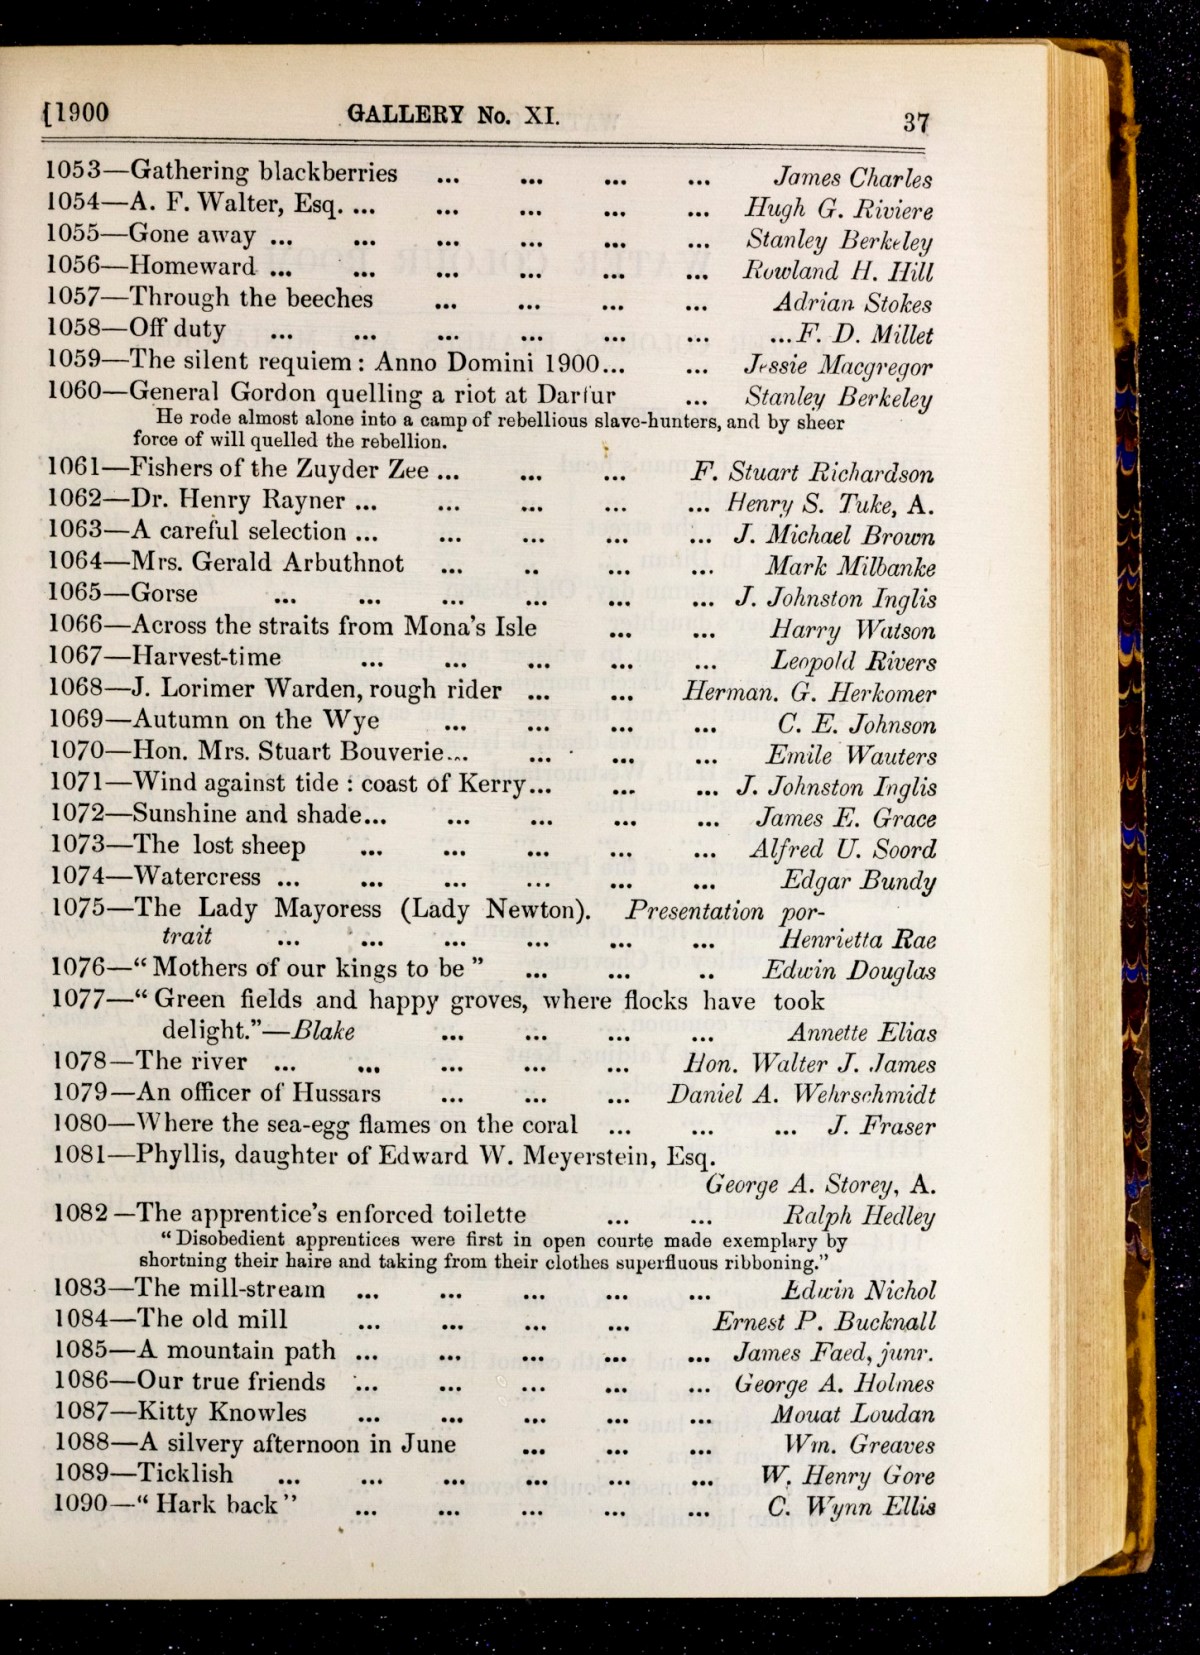 {1900 GALLERY No. XI. 37
1053—Gathering blackberries ... ... ... ... James Charles
1054—A. F. Walter, Esq. ... ... ... ... ... Hugh G. Riviere
1055—Gone away ... ... ... ... ... ... Stanley Berkeley
1056—Homeward ... ... ... ... ... ... Rowland H. Hill
1057—Through the beeches ... ... ... ... Adrian Stokes
1058—Off duty ... ... ... ... ... ... ... F. D. Millet
1059—The silent requiem: Anno Domini 1900... ... Jessie Macgregor
1060—General Gordon quelling a riot at Darfur ... Stanley Berkeley
He rode almost alone into a camp of rebellious slave-hunters, and by sheer
force of will quelled the rebellion.
1061—Fishers of the Zuyder Zee ... ... ... F. Stuart Richardson
1062—Dr. Henry Rayner ... ... ... ... ... Henry S. Tuke, A.
1063—A careful selection ... ... ... ... ... J. Michael Brown
1064—Mrs. Gerald Arbuthnot ... .. ... ... Mark Milbanke
1065—Gorse ... ... ... ... ... ... J. Johnston Inglis
1066—Across the straits from Mona's Isle ... ... Harry Watson
1067—Harvest-time ... ... ... ... ... Leopold Rivers
1068—J. Lorimer Warden, rough rider ... ... Herman. G. Herkomer
1069—Autumn on the Wye ... ... ... ... C. E. Johnson
1070—Hon. Mrs. Stuart Bouverie... ... ... ... Emile Wauters
1071—Wind against tide : coast of Kerry... ... ... J. Johnston Inglis
1072—Sunshine and shade... ... ... ... ... James E. Grace
1073—The lost sheep ... ... ... ... ... Alfred U. Soord
1074—Watercress ... ... ... ... ... ... Edgar Bundy
1075—The Lady Mayoress (Lady Newton). Presentation por-
trait ... ... ... ... ... ... Henrietta Rae
1076—“ Mothers of our kings to be ” ... ... .. Edwin Douglas
1077—“ Green fields and happy groves, where flocks have took
delight.”—Blake ... ... ... ... Annette Elias
1078—The river ... ... ... ... ... Hon. Walter J. James
1079—An officer of Hussars ... ... ... Daniel A. Wehrschmidt
1080—Where the sea-egg flames on the coral ... ... ... J. Fraser
1081—Phyllis, daughter of Edward W. Meyerstein, Esq.
George A. Storey, A.
1082—The apprentice's enforced toilette ... ... Ralph Hedley
“ Disobedient apprentices were first in open courte made exemplary by
shortning their haire and taking from their clothes superfluous ribboning.”
1083—The mill-stream ... ... ... ... ... Edwin Nichol
1084—The old mill ... ... ... ... Ernest P. Bucknall
1085—A mountain path ... ... ... ... ... James Faed, junr.
1086—Our true friends ... ... ... ... ... George A. Holmes
1087—Kitty Knowles ... ... ... ... ... Mouat Loudan
1088—A silvery afternoon in June ... ... ... Wm. Greaves
1089—Ticklish ... ... ... ... ... ... W. Henry Gore
1090—“ Hark back” ... ... ... ... ... C. Wynn Ellis